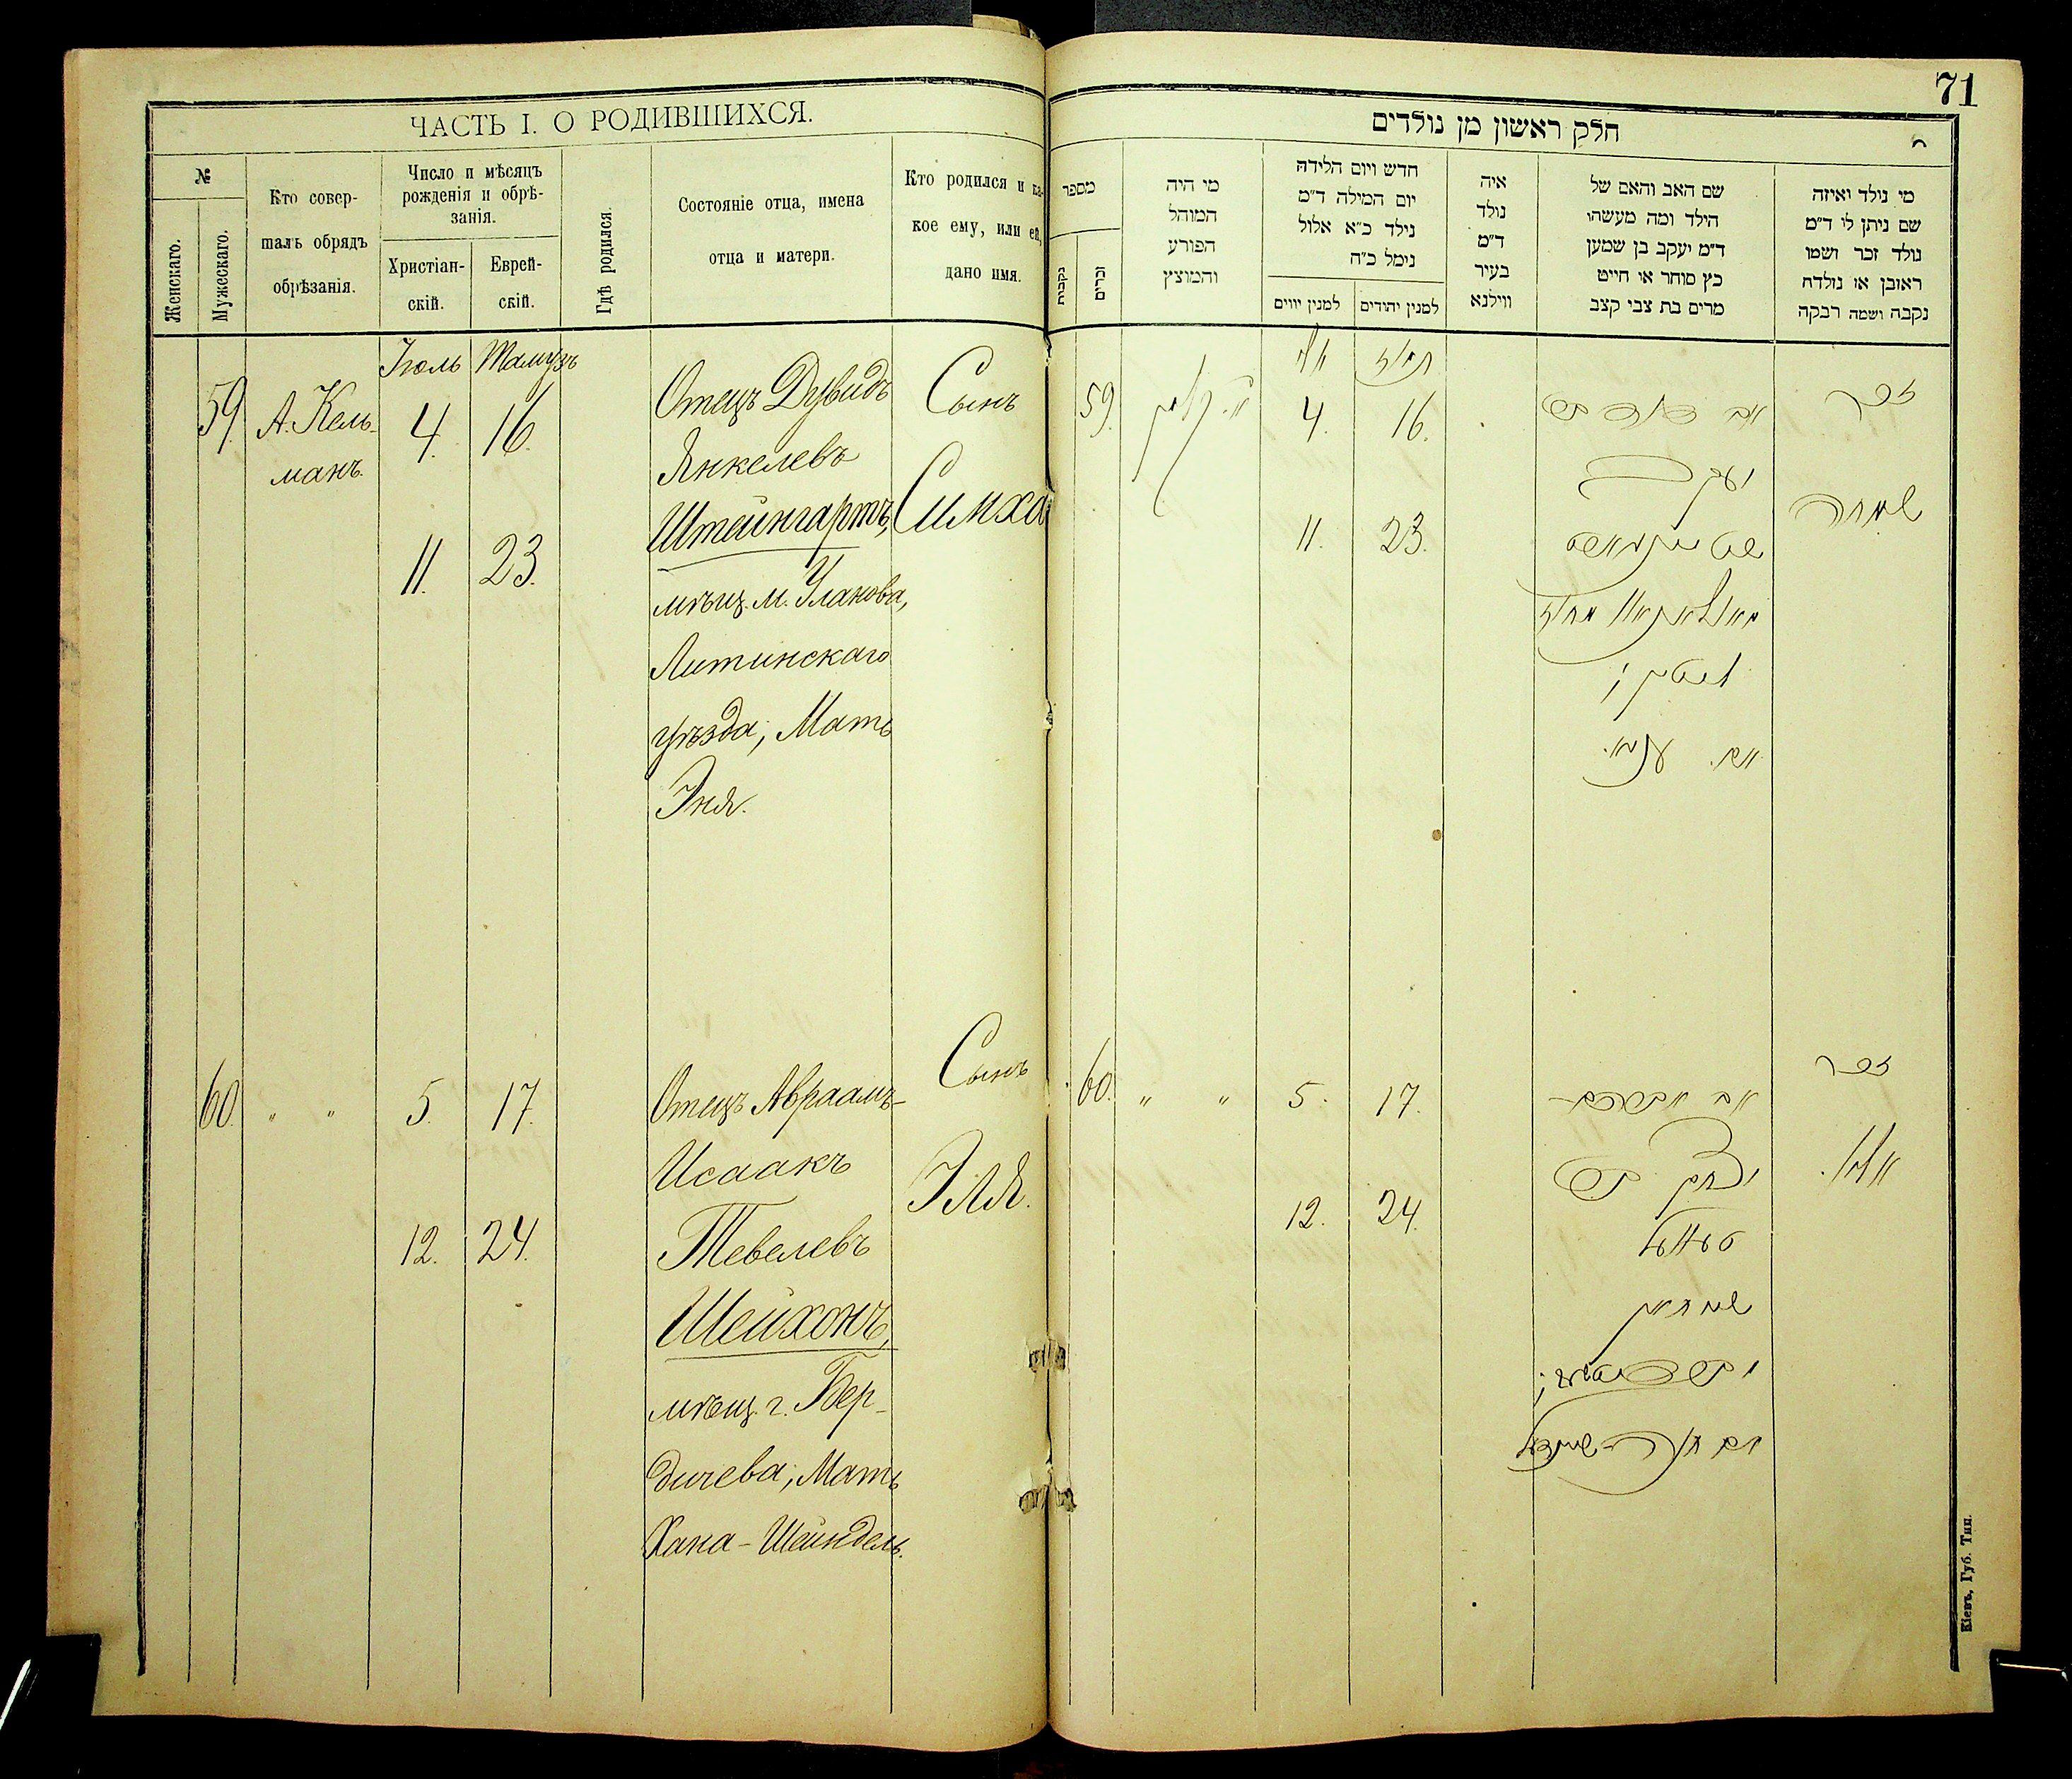 71
ЧАСТЬ I. О РОДИВШИХСЯ.
№
Женскаго.
Мужескаго.
Кто совер-
шалъ обрядъ
обрѣзанія.
Число и мѣсяцъ
рожденія и обрѣ-
занія.
Христіан-
скій.
Еврей-
скій.
Гдѣ родился.
Состояніе отца, имена
отца и матери.
Кто родился и ка-
кое ему, или ей,
дано имя.
Іюль Тамузъ
59. А. Кель-
манъ.
4. 16.
11. 23.
Отецъ Дувидъ
Янкелевъ
Штейнгартъ,
мѣщ. м. Уланова,
Литинскаго
уѣзда; Мать
Эня.
Сынъ
Симха
60. " " 5. 17.
12. 24.
Отецъ Авраамъ-
Исаакъ
Тевелевъ
Шейхонъ,
мѣщ. г. Бер-
дичева; Мать
Хана-Шейндель.
Сынъ
Эля.
חלק ראשון מן נולדים
מספר
נקבות
זכרים
מי היה
המוהל
הפורע
והמוצץ
חדש ויום הלידה
יום המילה ד"מ
נילד כ"א אלול
נימל כ"ה
למנין יווים
למנין יהודים
איה
נולד
ד"מ
בעיר
ווילנא
שם האב והאם של
הילד ומה מעשהו
ד"מ יעקב בן שמען
כץ סוחר או חייט
מרים בת צבי קצב
מי נולד ואיזה
שם ניתן לו ד"מ
נולד זכר ושמו
ראובן או נולדה
נקבה ושמה רבקה
59.
יולי תמוז
4. 16.
11. 23.
יעקב
זכר
שמחה
60. " " 5. 17.
12. 24.
יצחק
זכר
Кіевъ, Губ. Тип.